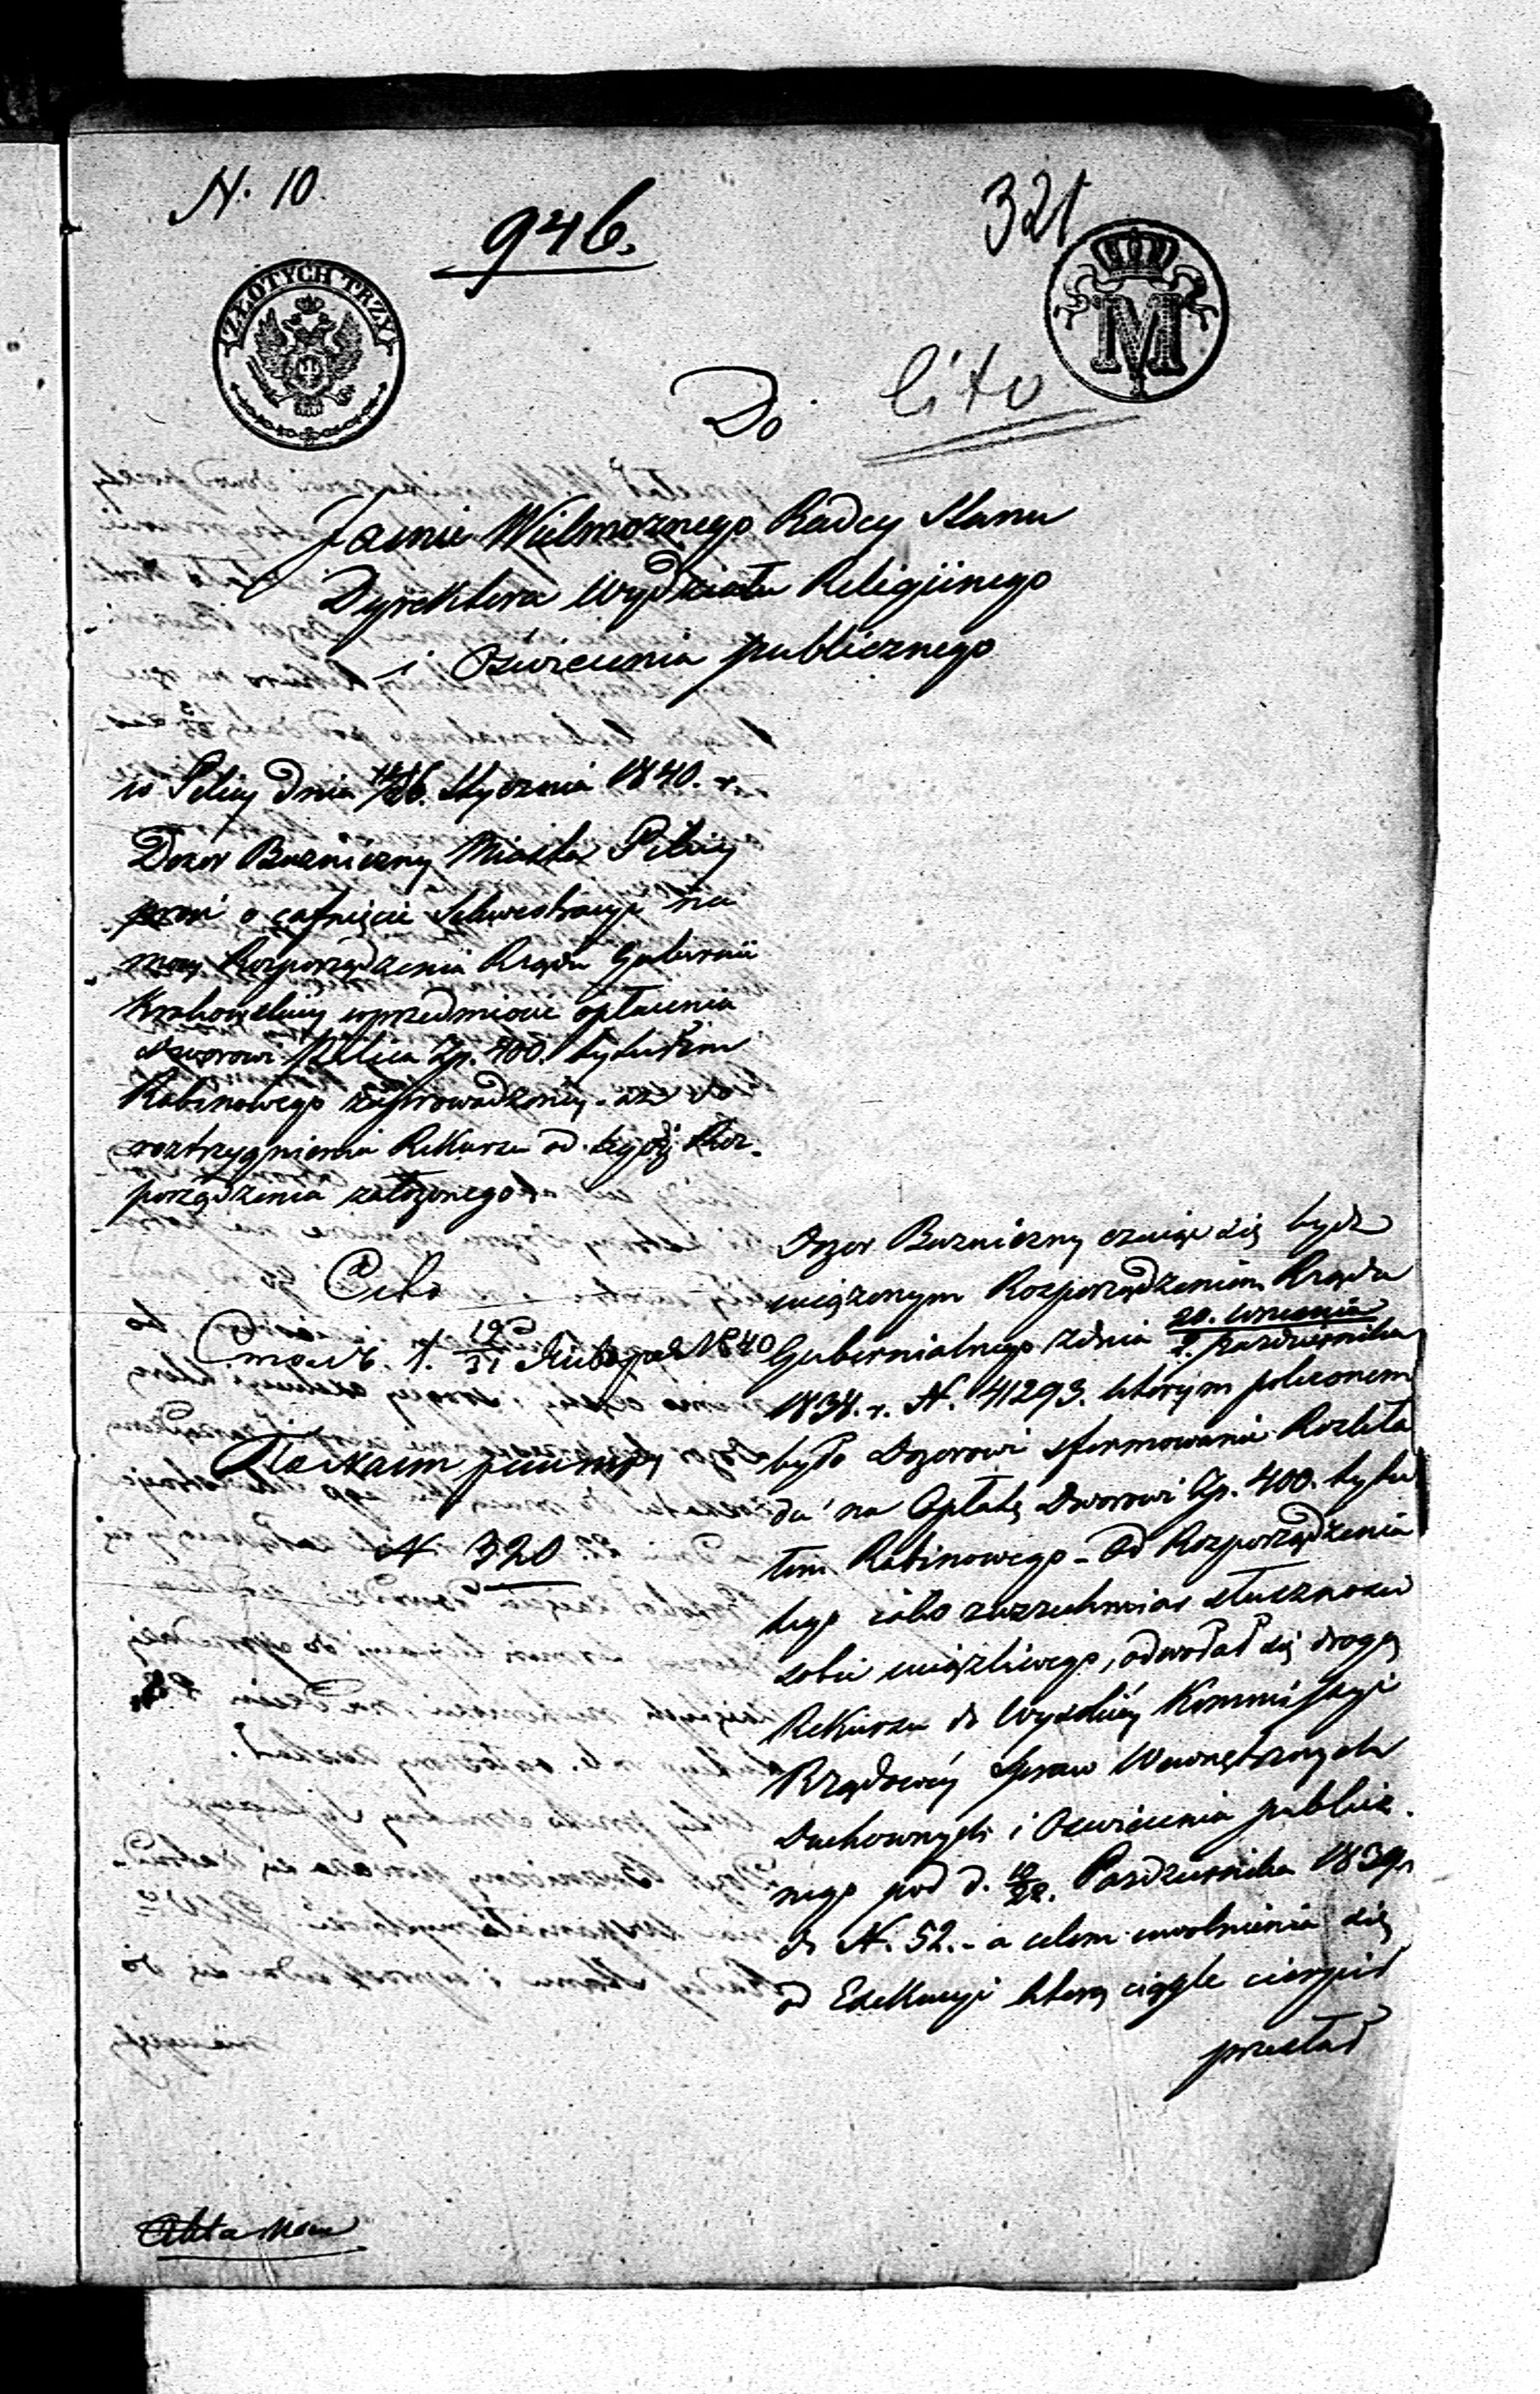 N. 10.
946.
321
ZŁOTYCH TRZY
M
Do
Cito
Jaśnie Wielmożnego Radcy Stanu
Dyrektora Wydziału Religijnego
i Oświecenia publicznego
w Pilicy dnia 14/26. Stycznia 1840. r.
Dozor Bozniczny Miasta Pilicy
prosi o cofnięcie Sekwestracyi na
mocy Rozporządzenia Rządu Gubernii
Krakowskiey wprzedmiocie opłacenia
Dworowi Pilica Zp. 400. tytułem
Rabinowego zaprowadzoney - aż do
roztrzygnienia Rekursu od tegoż Roz-
porządzenia założonego.
Cito
19/31 1840
N 320
Dozor Bozniczny czując się bydź
uciążonym Rozporządzeniem Rządu
Gubernialnego zdnia 20. września / 2. Pazdziernika
1838. r. N. 41293. którym poleconem
było Dozorowi sformowanie Rozkła
du na Opłatę Dworowi Zp. 400. tytu
łem Rabinowego - Od Rozporządzenia
tego iako słuszności
sobie uciążliwego, odwołał się drogą
Rekursu do Wysokiéy Kommissyi
Rządowéy Spraw Wewnętrznych
Duchownych i Oswiecenia publicz-
nego pod d. 10/22. Pazdziernika 1839 r
do N. 52. - a celem uwolnienia się
od Exekucyi którą ciągle cierpiał
przesłał
Akta